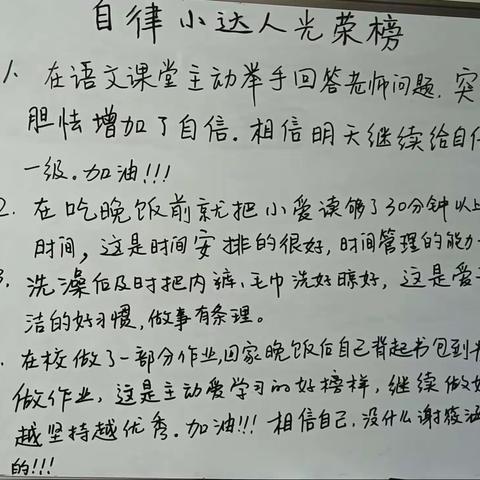 自律小达人光荣榜
1、在语文课堂主动举手回答老师问题.突
胆怯增加了自信.相信明天继续给自
一级.加油!!!
2.在吃晚饭前就把小爱读够了30分钟以上
时间,这是时间安排的很好,时间管理的能力
3.洗澡后及时把内裤、毛巾洗好晾好,这是爱
洁的好习惯,做事有条理。
.在校做了一部分作业,回家晚饭后自己背起书包到
做作业,这是主动爱学习的好榜样,继续做
越坚持越优秀.加油!!!相信自己,没什么谢
的!!!